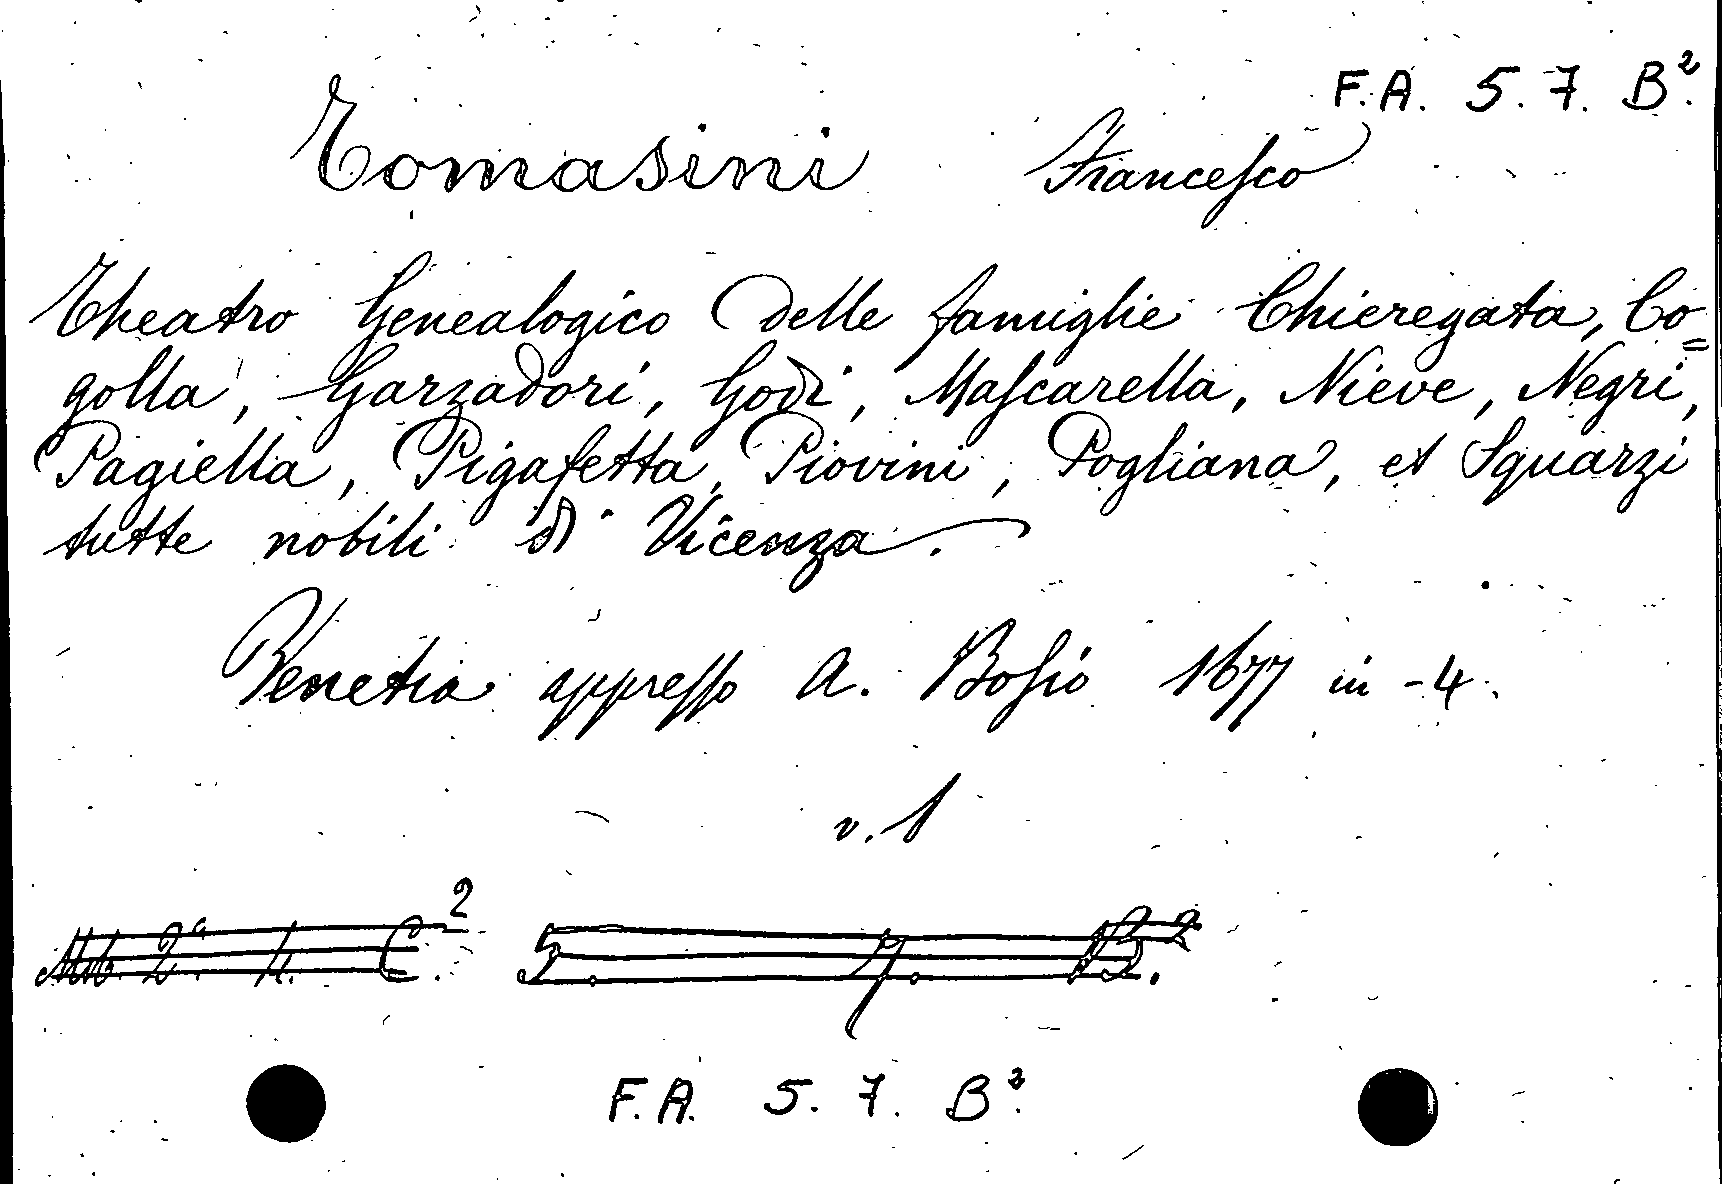 F.A. 5. 7. B².
Tomasini Francesco
Theatro Genealogico delle famiglie Chieregata, Co=
golla, Garzadori, Godi, Mascarella, Nieve, Negri,
Pagiella, Pigafetta, Piovini, Pogliana, et Squarzi
tutte nobili di Vicenza.
Venetia appresso A. Bosio 1677 in -4.
v. 1
2ª. 4. C.² 5. 7. B.²
F.A. 5. 7. B².